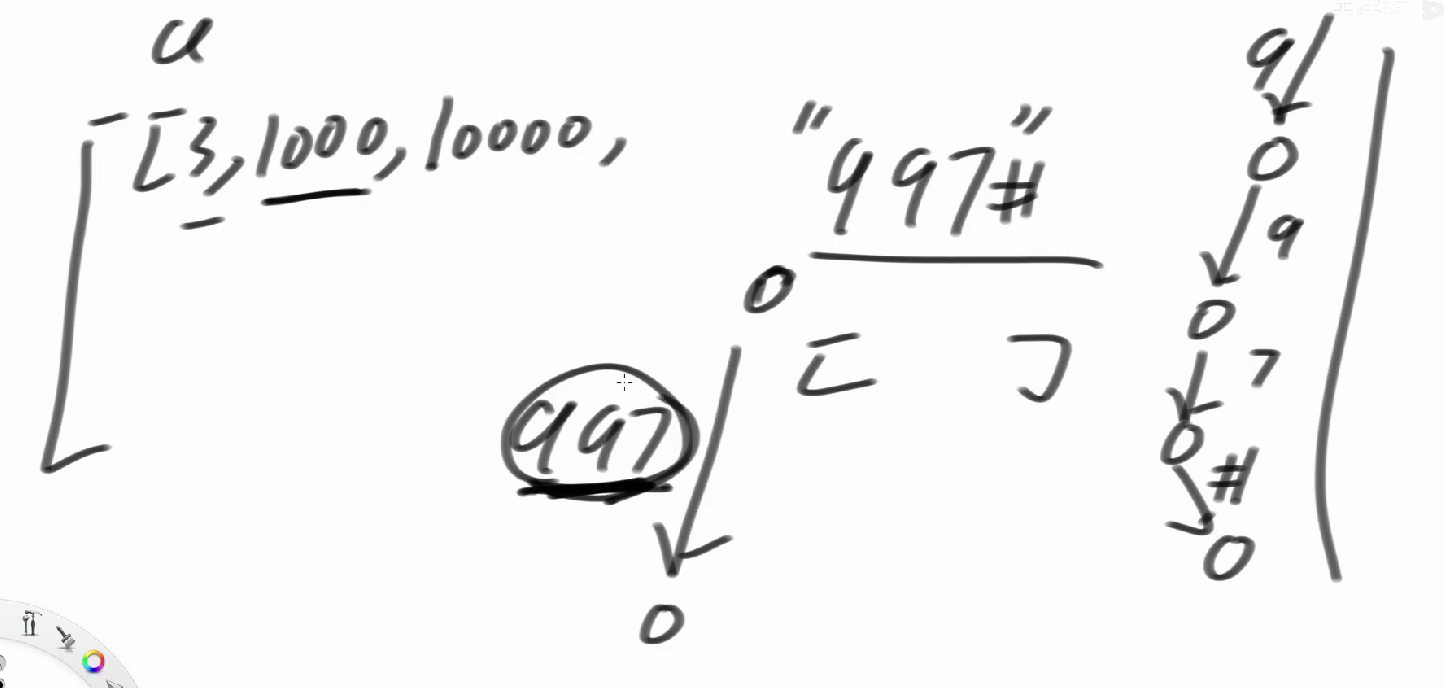 a
[[3, 1000, 10000,
"997#"
0
[ ]
997
0
9
0
9
0
7
0
#
0